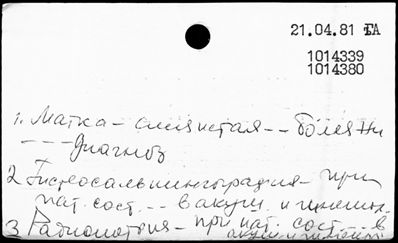 21.04.81 ГА
1014339
1014380
1. Матка - слизистая -- болезни
--- диагноз
2 Гистеросальпингография - при
пат. сост. -- в акуш. и гинекол.
3 Радиометрия - при пат. сост. -- в
акуш. и гинекол.